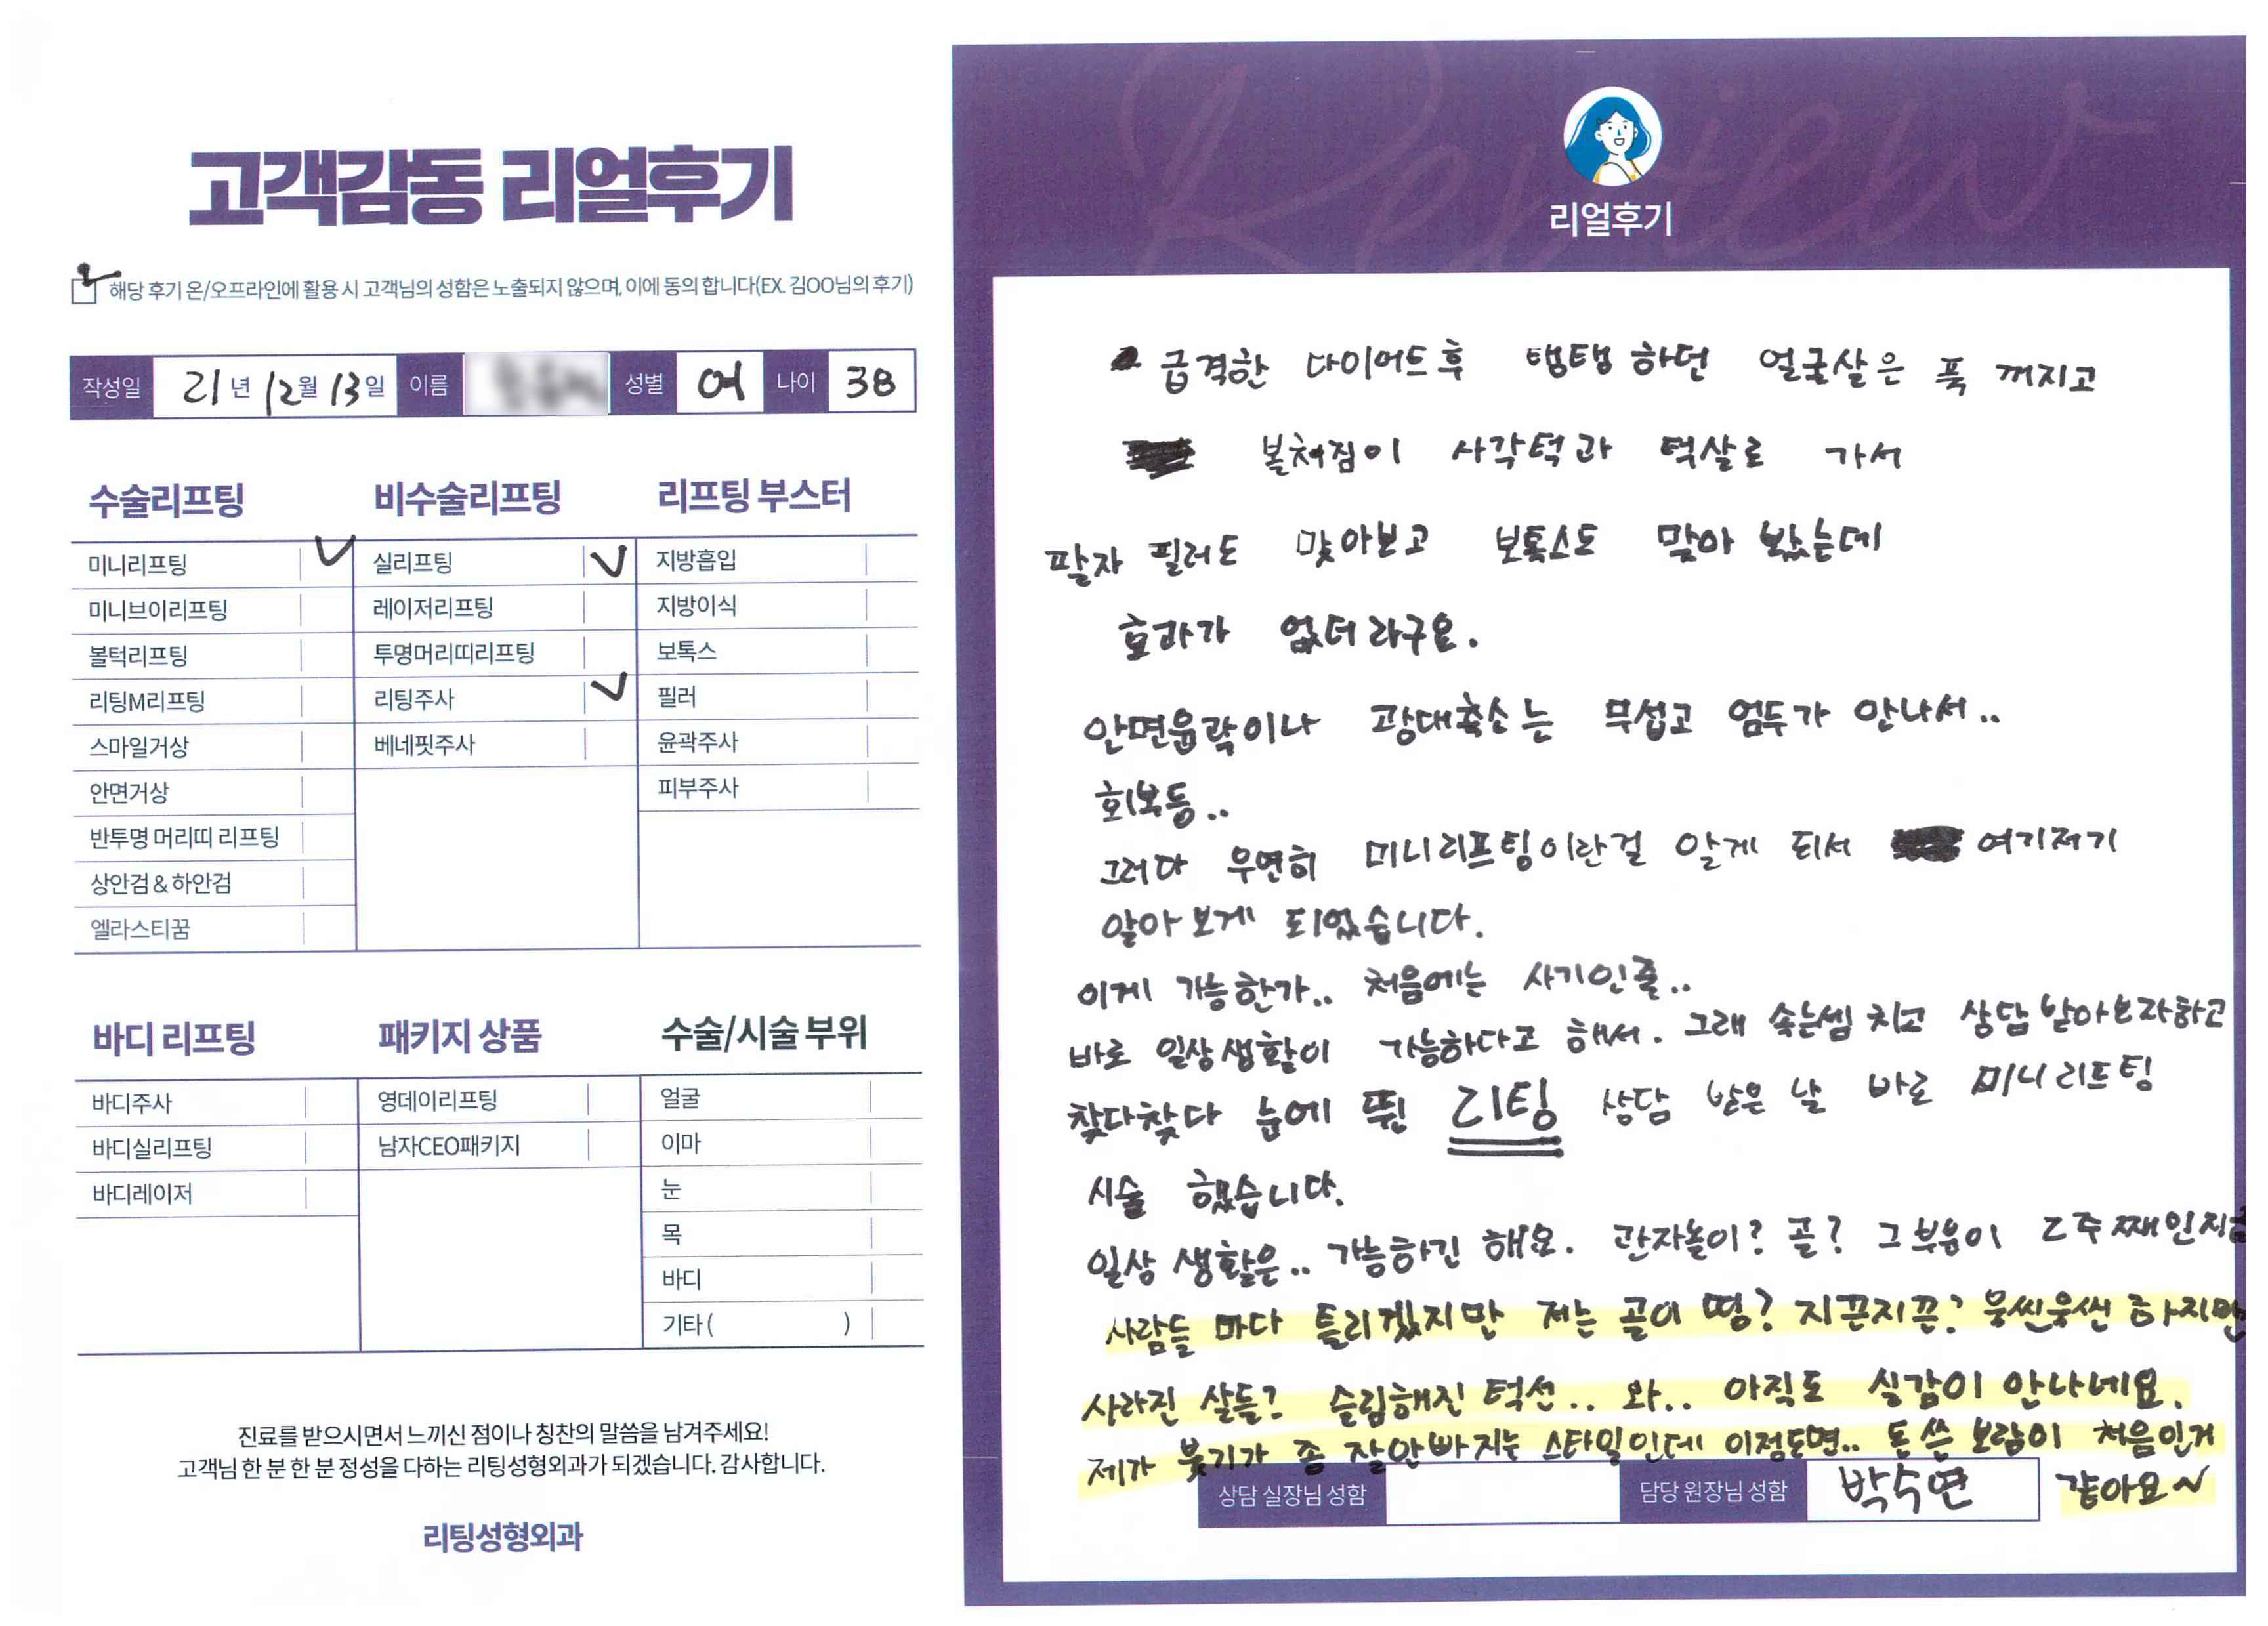 고객감동 리얼후기
해당 후기 온/오프라인에 활용 시 고객님의 성함은 노출되지 않으며, 이에 동의 합니다(EX. 김OO님의 후기)
작성일 21년 12월 13일 이름 성별 여 나이 38
수술리프팅
미니리프팅
미니브이리프팅
볼턱리프팅
리팅M리프팅
스마일거상
안면거상
반투명 머리띠 리프팅
상안검 & 하안검
엘라스티꿈
비수술리프팅
실리프팅
레이저리프팅
투명머리띠리프팅
리팅주사
베네핏주사
리프팅 부스터
지방흡입
지방이식
보톡스
필러
윤곽주사
피부주사
바디 리프팅
바디주사
바디실리프팅
바디레이저
패키지 상품
영데이리프팅
남자CEO패키지
수술/시술 부위
얼굴
이마
눈
목
바디
기타 ( )
진료를 받으시면서 느끼신 점이나 칭찬의 말씀을 남겨주세요!
고객님 한 분 한 분 정성을 다하는 리팅성형외과가 되겠습니다. 감사합니다.
리팅성형외과
Review
리얼후기
급격한 다이어트후 탱탱하던 얼굴살은 푹 꺼지고
볼처짐이 사각턱과 턱살로 가서
팔자 필러도 맞아보고 보톡스도 맞아 봤는데
효과가 없더라구요.
안면윤곽이나 광대축소는 무섭고 엄두가 안나서..
회복등..
그러다 우연히 미니리프팅이란걸 알게 되서 여기저기
알아보게 되었습니다.
이게 가능한가.. 처음에는 사기인줄..
바로 일상생활이 가능하다고 해서. 그래 속는셈 치고 상담 받아보자하고
찾다찾다 눈에 띈 리팅 상담 받은 날 바로 미니리프팅
시술 했습니다.
일상 생활은.. 가능하긴 해요. 관자놀이? 골? 그 부위 2주째인지금
사람들 마다 틀리겠지만 저는 골이 띵? 지끈지끈? 욱씬욱씬 하지만
사라진 살들? 슬림해진 턱선.. 와.. 아직도 실감이 안나네요.
제가 붓기가 좀 잘안빠지는 스타일인데 이정도면.. 돈 쓴 보람이 처음인거
같아요~
상담 실장님 성함 담당 원장님 성함 박수연